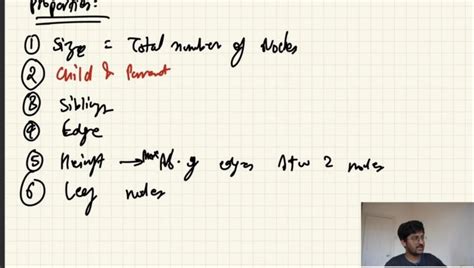 Properties:
① Size = Total number of Nodes
② Child & Parent
③ Siblings
④ Edge
⑤ Height → max No. of edges btw 2 nodes
⑥ Leaf nodes